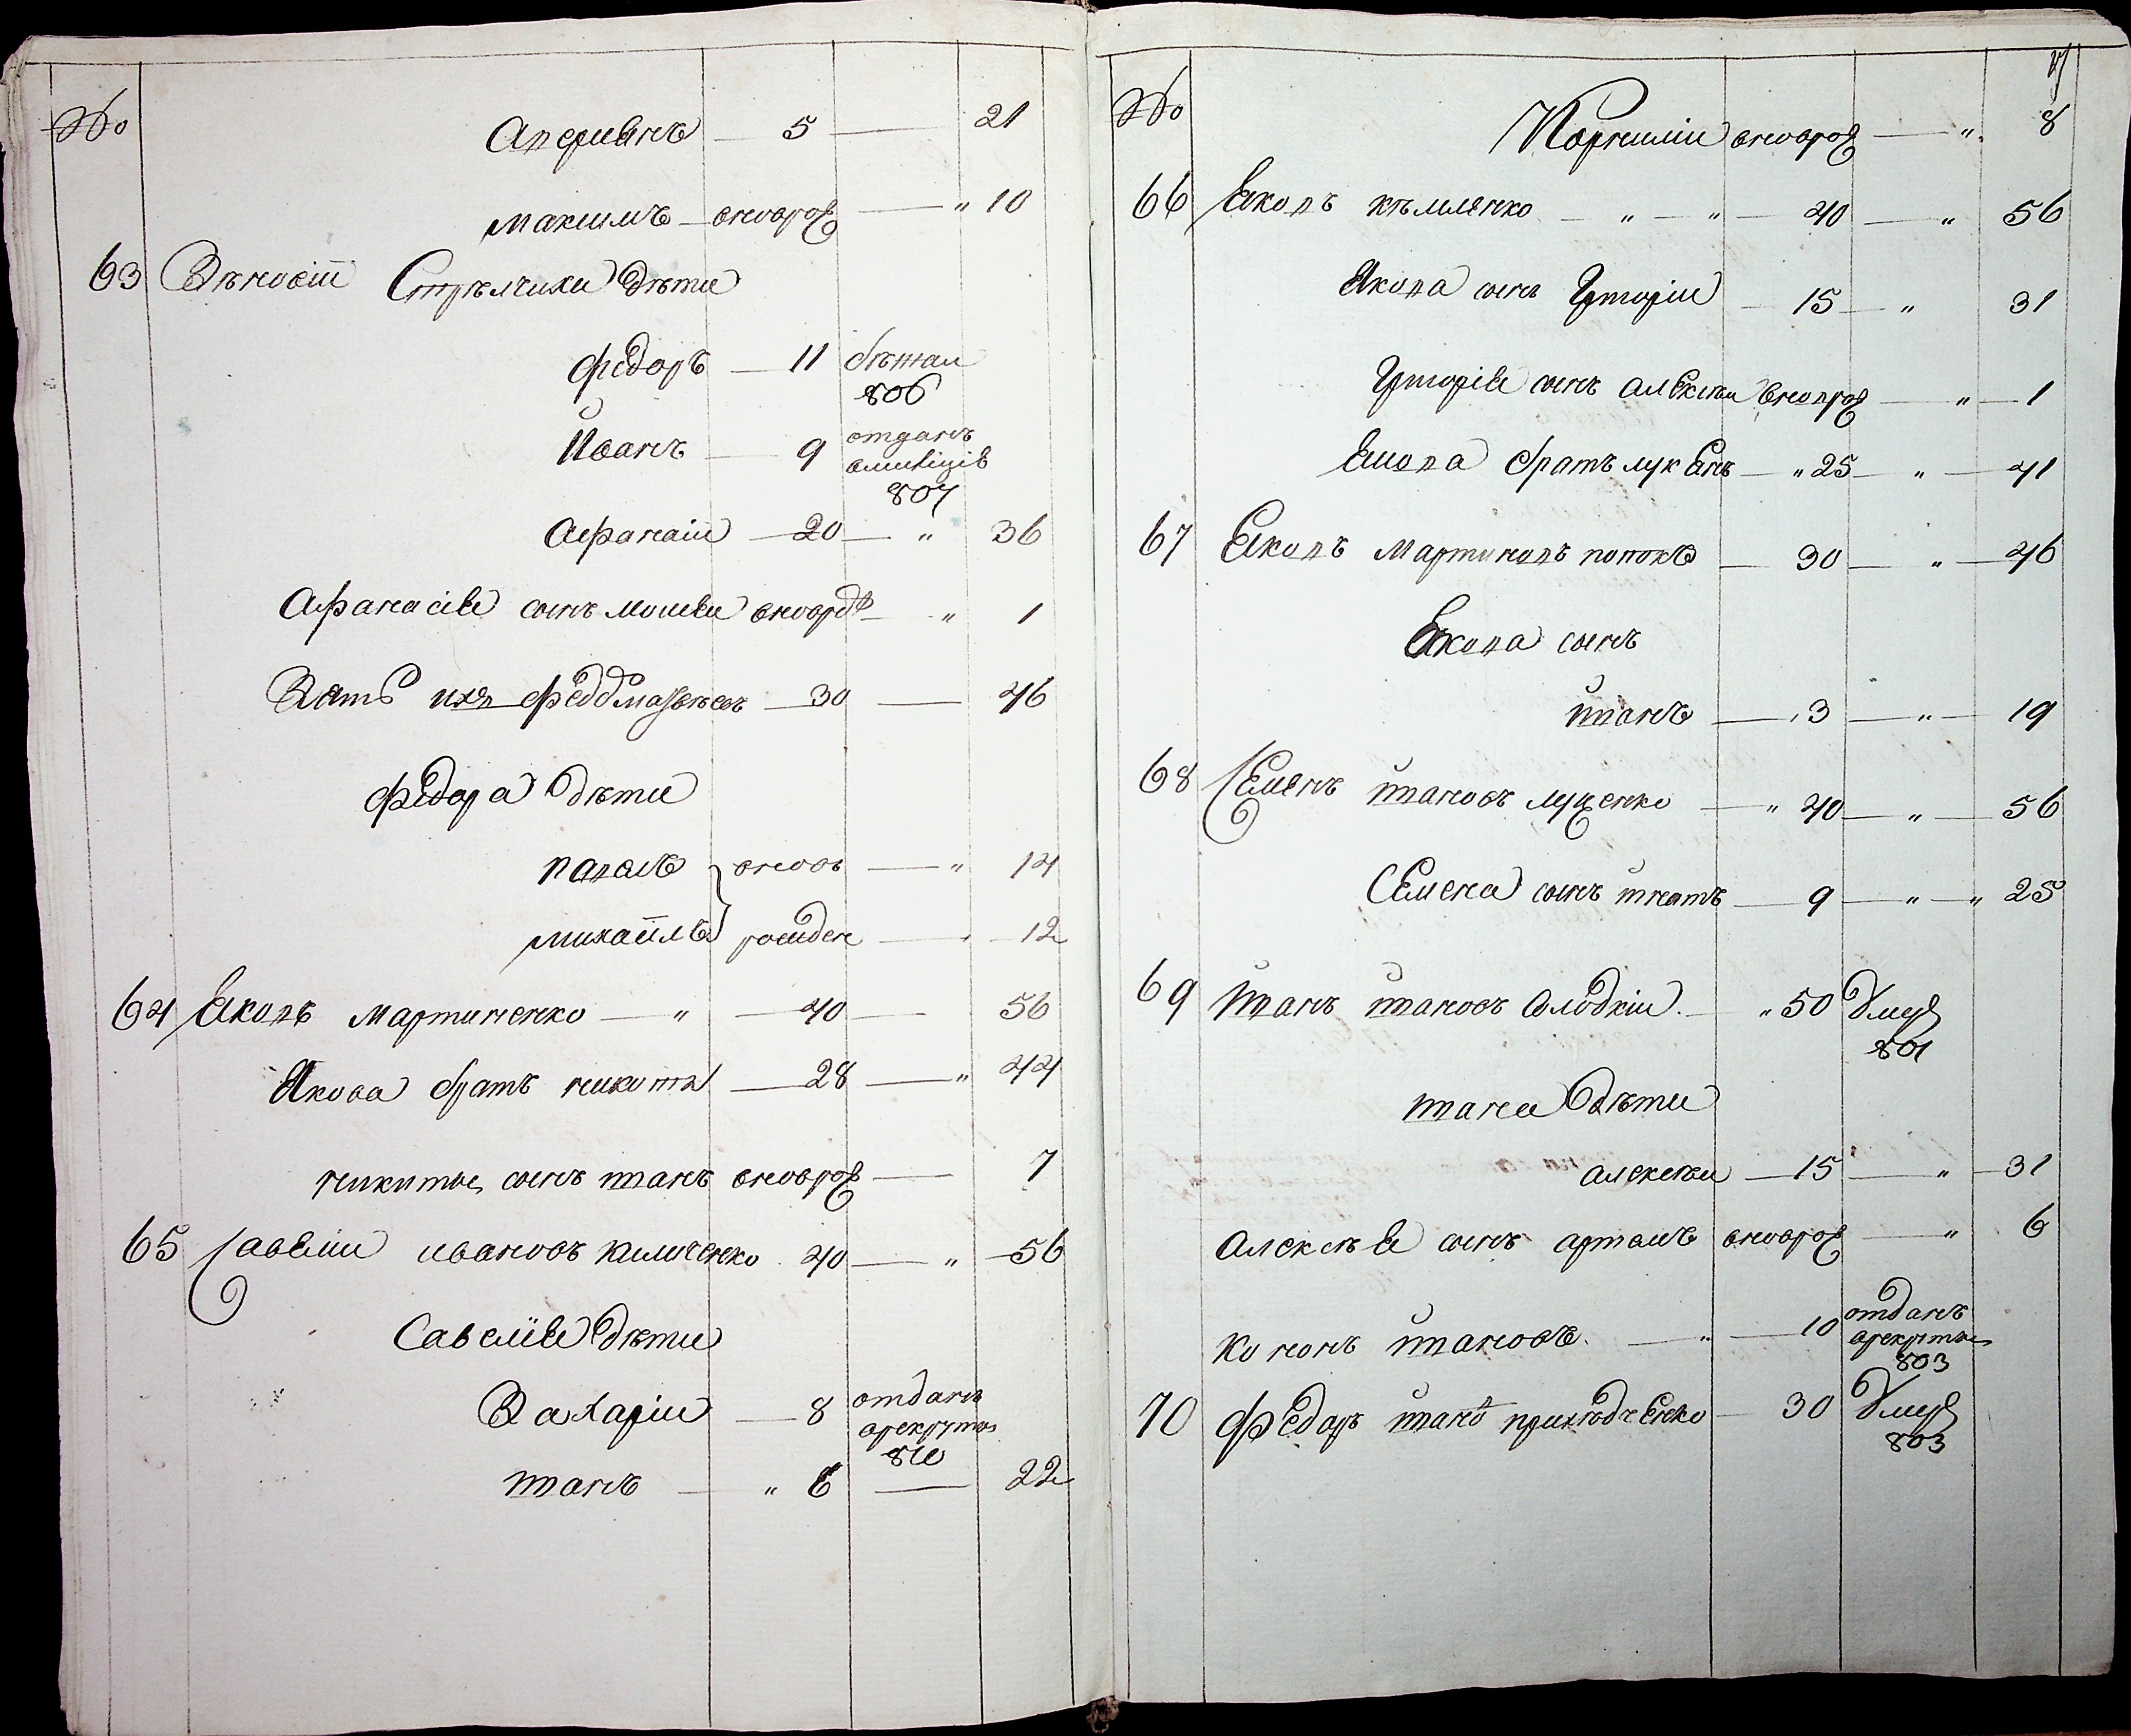 №
Аверианъ — 5 — 21
максимъ — вновь рож — „ 10
63 Зѣновіи Стрѣлчики дѣти
федоръ — 11 бѣжал
806
Иванъ — 9 отданъ
вмилиціѣ
807
Афанаіи — 20 — „ 36
Афанасіѣ сынъ моисѣи вновь рож — „ 1
Зять ихъ Федо Матвѣевъ — 30 — 46
федора дѣти
павелъ } вновь — „ 14
михаилъ } рожден — 12
64 Яковъ мартиненко — „ — 40 — 56
Якова братъ никита — 28 — „ 44
никиты сынъ иванъ вновь рож — 7
65 Савелии ивановъ 40 — „ — 56
Савеліѣ дѣти
Захаріи — 8 отданъ
врекруты
810
иванъ — „ 6 — 22
№
Корнилии вновь рож — „ 8
66 Яковъ — „ — „ — 40 — „ 56
Якова сынъ Григоріи — 15 — „ 31
Григоріѣ сынъ алексѣи вновь рож — „ — 1
Якова братъ лукянъ — „ 25 — „ — 41
67 Яковъ Мартиновъ — 30 — „ — 46
Якова сынъ
иванъ — , 3 — „ — 19
68 Семенъ ивановъ луценко — „ 40 — „ — 56
Семена сынъ игнатъ — 9 — „ — „ 25
69 Иванъ ивановъ солодкіи. — „ 50 Умер
801
ивана дѣти
алексѣи — 15 — „ — 31
алексѣѣ сынъ артемъ вновь рож — „ 6
кононъ ивановъ. — „ — 10 отданъ
врекруты
803
70 Федоръ ивано приходченко — 30 Умер
803